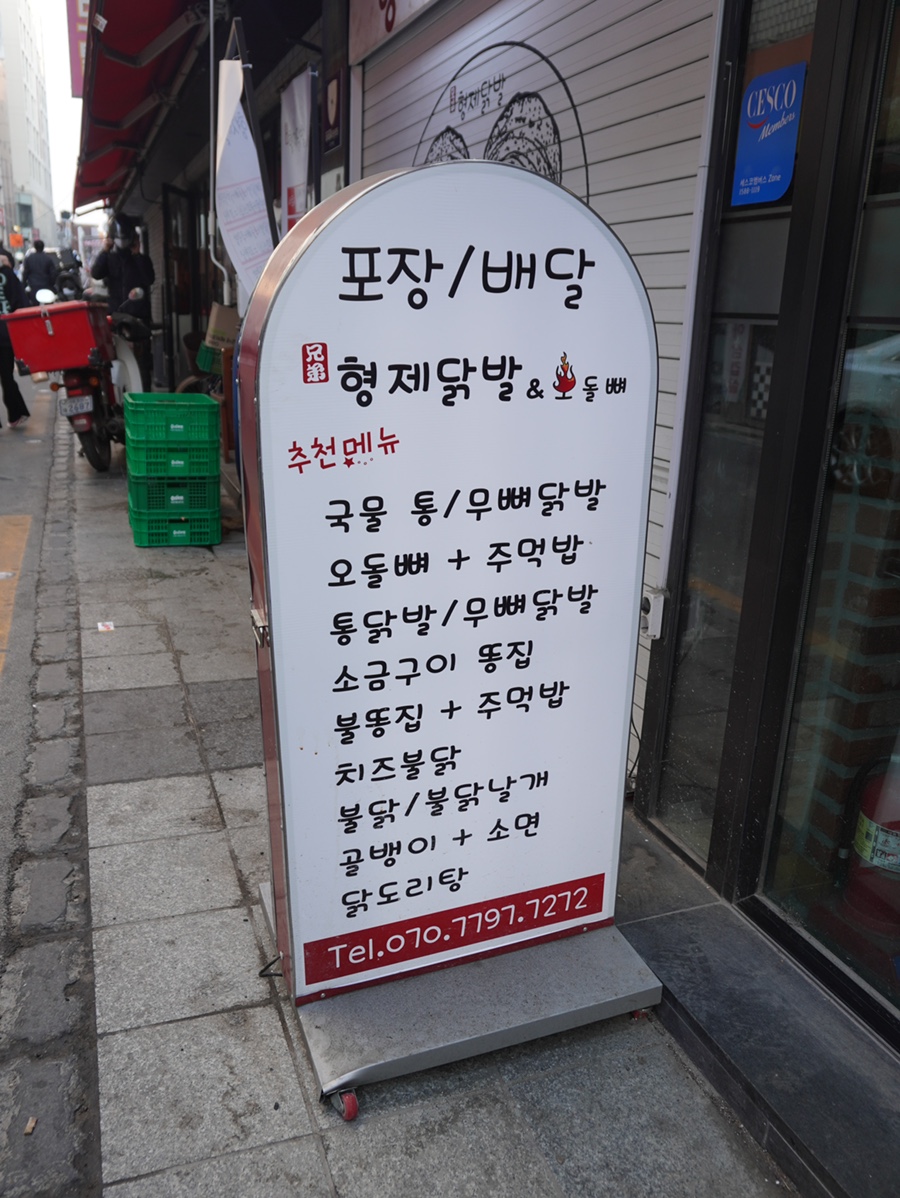 형제닭발
CESCO
Members
세스코멤버스 Zone
포장/배달
兄弟
형제닭발 & 오돌뼈
추천메뉴
국물 통/무뼈닭발
오돌뼈 + 주먹밥
통닭발/무뼈닭발
소금구이 똥집
불똥집 + 주먹밥
치즈불닭
불닭/불닭날개
골뱅이 + 소면
닭도리탕
Tel.070.7797.7272